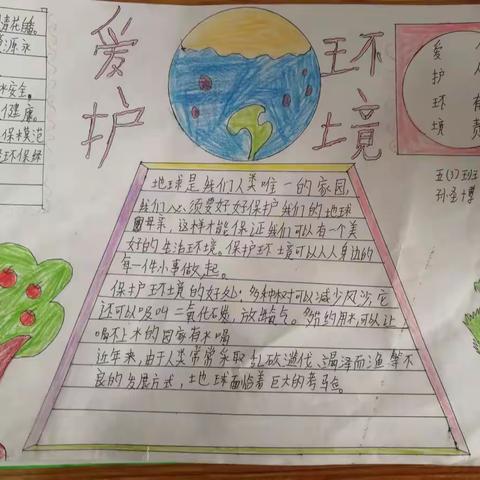 爱护
环境
青花瓷。
资源永
安全。
健康。
保模范
环保
爱
护
环
境
人
有
责
五(1)班
孙圣博
地球是我们人类唯一的家园,
我们必须要好好保护我们的地球
母亲,这样才能保证我们可以有一个美
好的生活环境。保护环境可以人人身边的
每一件小事做起。
保护环境的好处:多种树可以减少风沙,它
还可以吸叫二氧化碳,放输气。多给约用水,可以让
喝不上水的国家有水喝
近年来,由于人类常常采取乱砍滥伐、竭泽而渔等不
良的发展方式,土地球面临着巨大的考马佥。